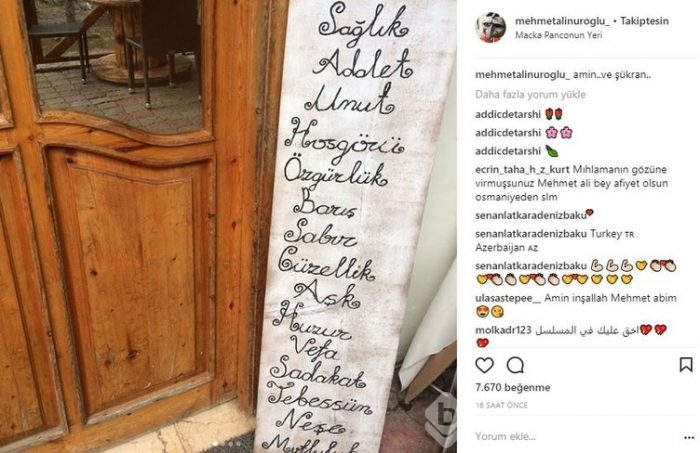 Sağlık
Adalet
Umut
Hoşgörü
Özgürlük
Barış
Sabır
Güzellik
Aşk
Huzur
Vefa
Sadakat
Tebessüm
Neşe
mehmetalinuroglu_ • Takiptesin
Macka Panconun Yeri
mehmetalinuroglu_ amin..ve şükran..
Daha fazla yorum yükle
addicdetarshi 🌹🌹
addicdetarshi 🌸🌸
addicdetarshi
ecrin_taha_h_z_kurt Mıhlamanın gözüne
virmuşsunuz Mehmet ali bey afiyet olsun
osmaniyeden slm
senanlatkaradenizbaku
senanlatkaradenizbaku Turkey TR
Azerbaijan AZ
senanlatkaradenizbaku
ulasastepee__ Amin inşallah Mehmet abim
😍😘
molkadr123 احق عليك في المسلسل
7.670 beğenme
16 SAAT ÖNCE
Yorum ekle...